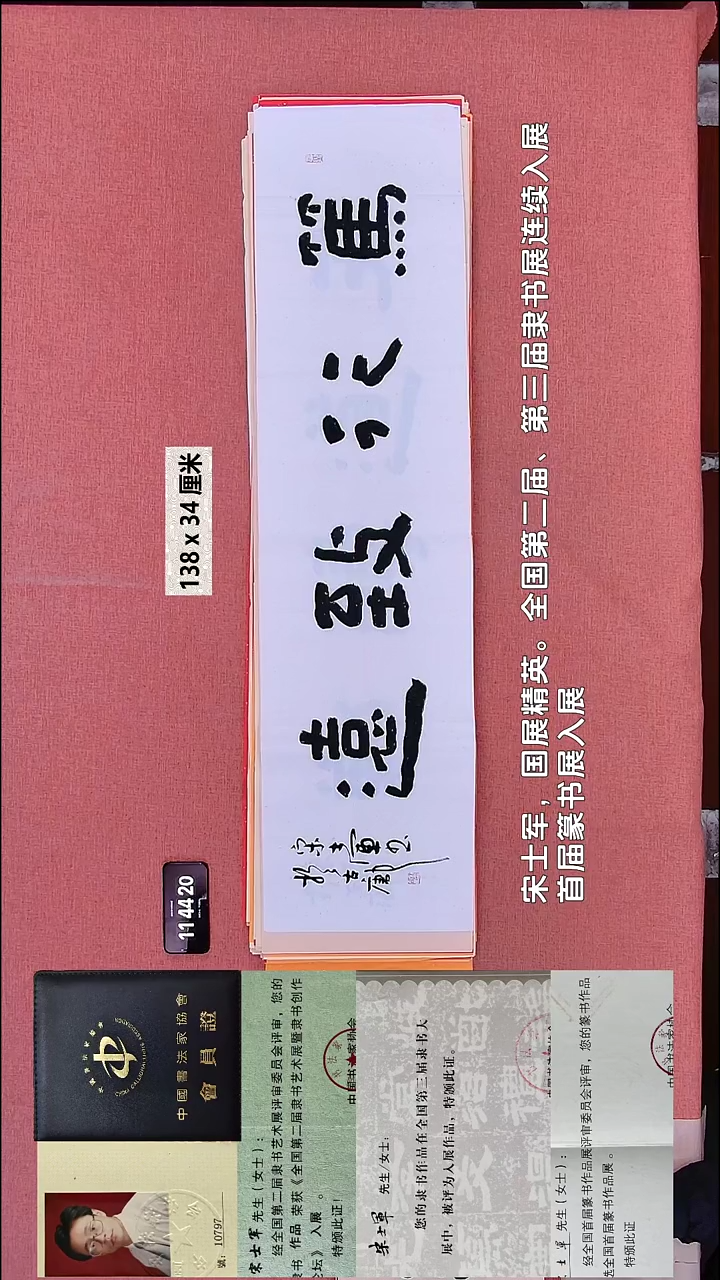 138 x 34 厘米
篤行致遠
宋士軍
於古唐
宋士军，国展精英。全国第二届、第三届隶书展连续入展
首届篆书展入展
11 44 20
中國書法家協會
會員證
號：10797
宋士军 先生（女士）：
经全国第二届隶书艺术展评审委员会评审，您的
隶书 作品 荣获《全国第二届隶书艺术展暨隶书创作
论坛》 入展 。
特颁此证！
中国书法家协会
宋士軍 先生/女士：
您的隶书作品在全国第三届隶书大
展中，被评为入展作品，特颁此证。
士軍 先生（女士）：
经全国首届篆书作品展评审委员会评审，您的篆书作品
选全国首届篆书作品展。
特颁此证
中国书法家协会